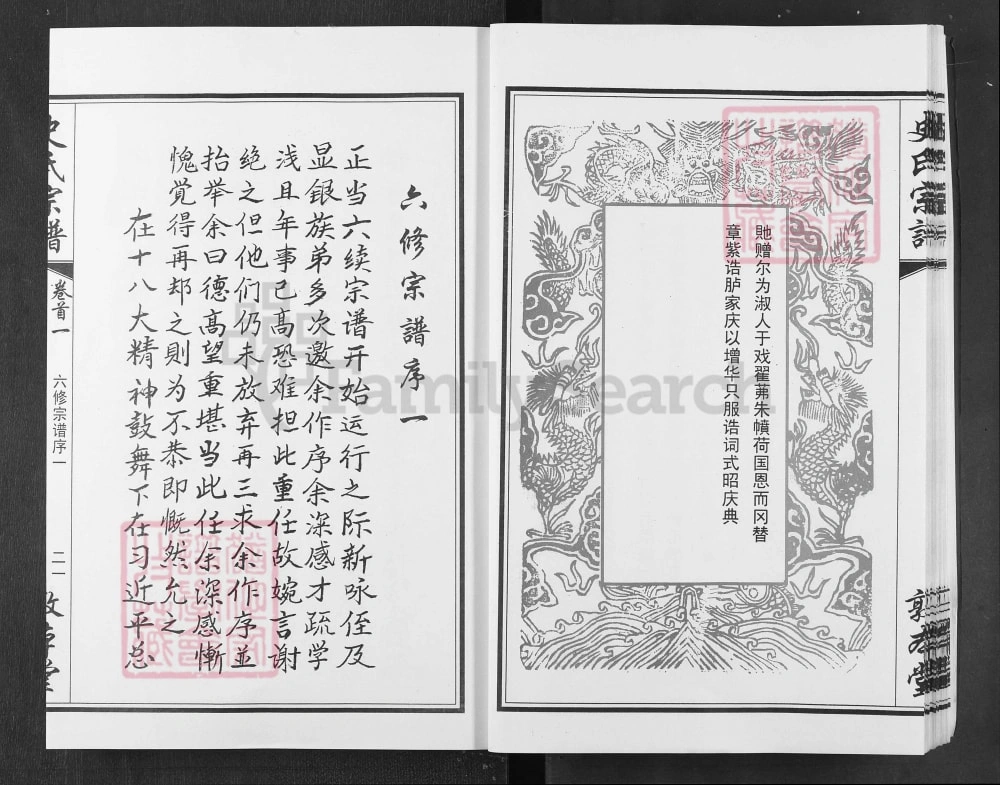 貤赠尔为淑人于戏翟茀朱幩荷国恩而冈替
章紫诰胪家庆以增华只服诰词式昭庆典
史氏宗谱
六修宗譜序一
正当六续宗谱开始运行之际新咏侄及
显银族弟多次邀余作序余深感才疏学
浅且年事已高恐难担此重任故婉言谢
绝之但他们仍未放弃再三求余作序並
抬举余曰德高望重堪当此任余深感慚
愧觉得再却之则为不恭即慨然允之
在十八大精神鼓舞下在习近平总
史氏宗谱
卷首一
六修宗谱序一
二一
FamilySearch